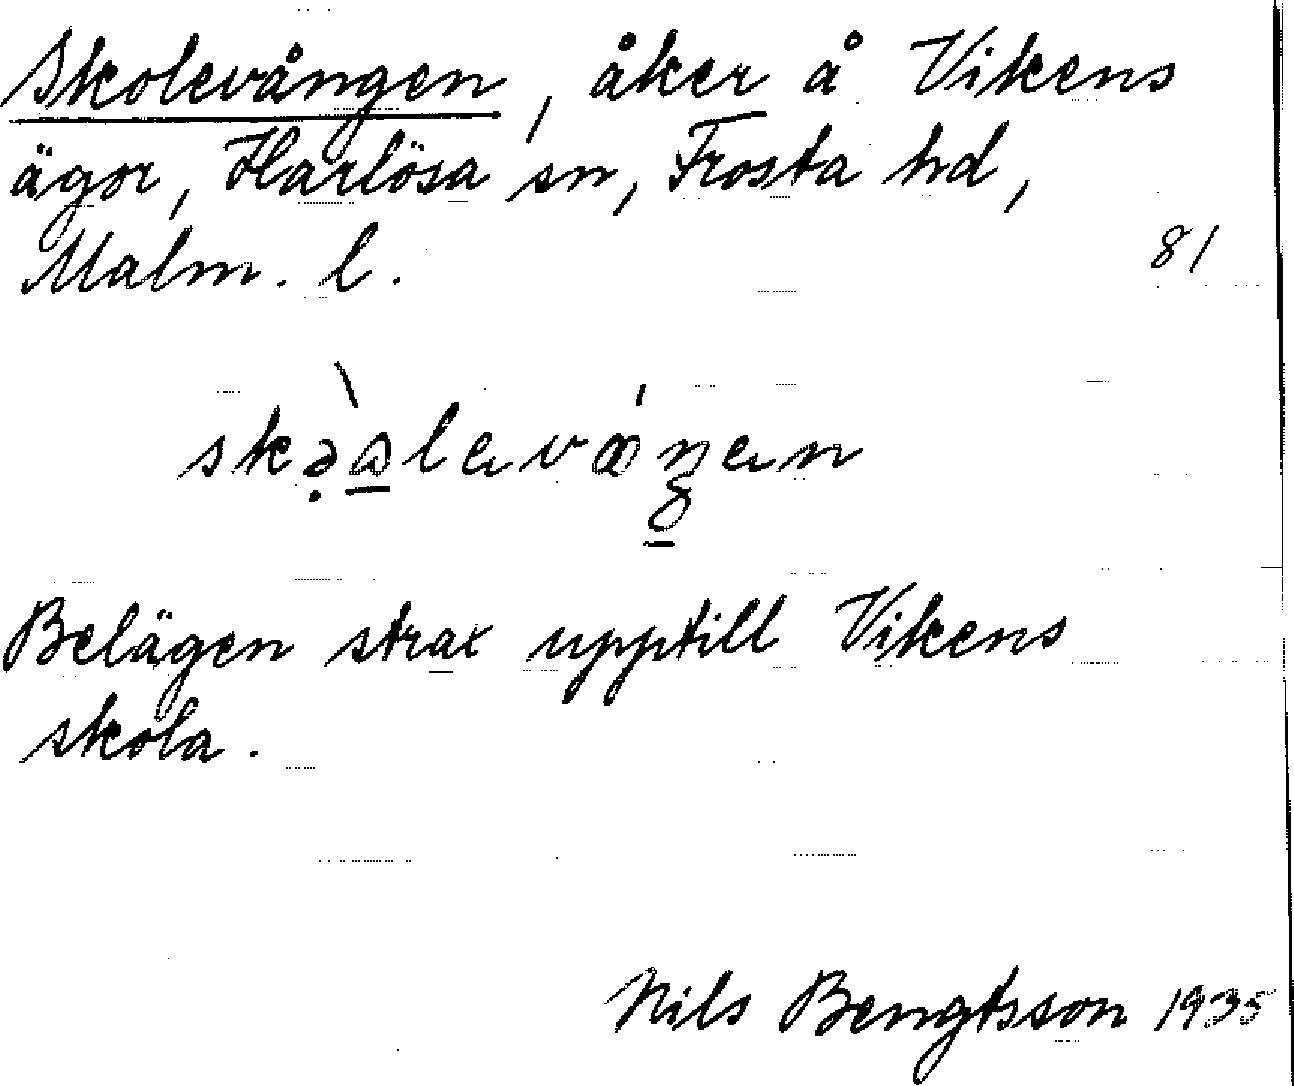 Skolevången, åker å Vikens
ägor, Harlösa sn, Frosta hd,
Malm. l.
81
Belägen strax upptill Vikens
skola.
Nils Bengtsson 1935